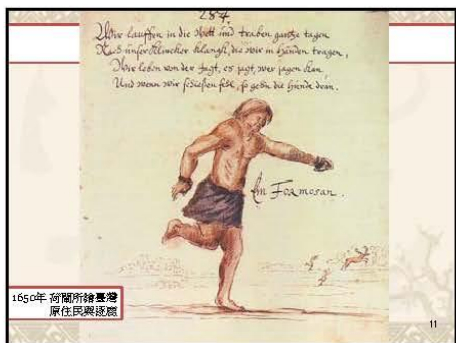 284.
Wir lauffen in die Wett und traben gantze tagen
Nach unser Klincker Klangk, die wir in händen tragen,
Wir leben von der Jagt, es jagt, wer jagen kan,
Und wenn wir schießen fehl, so gehn die hunde dran.
Ein Formosan.
1650年 荷蘭所繪臺灣
原住民與逐鹿
11